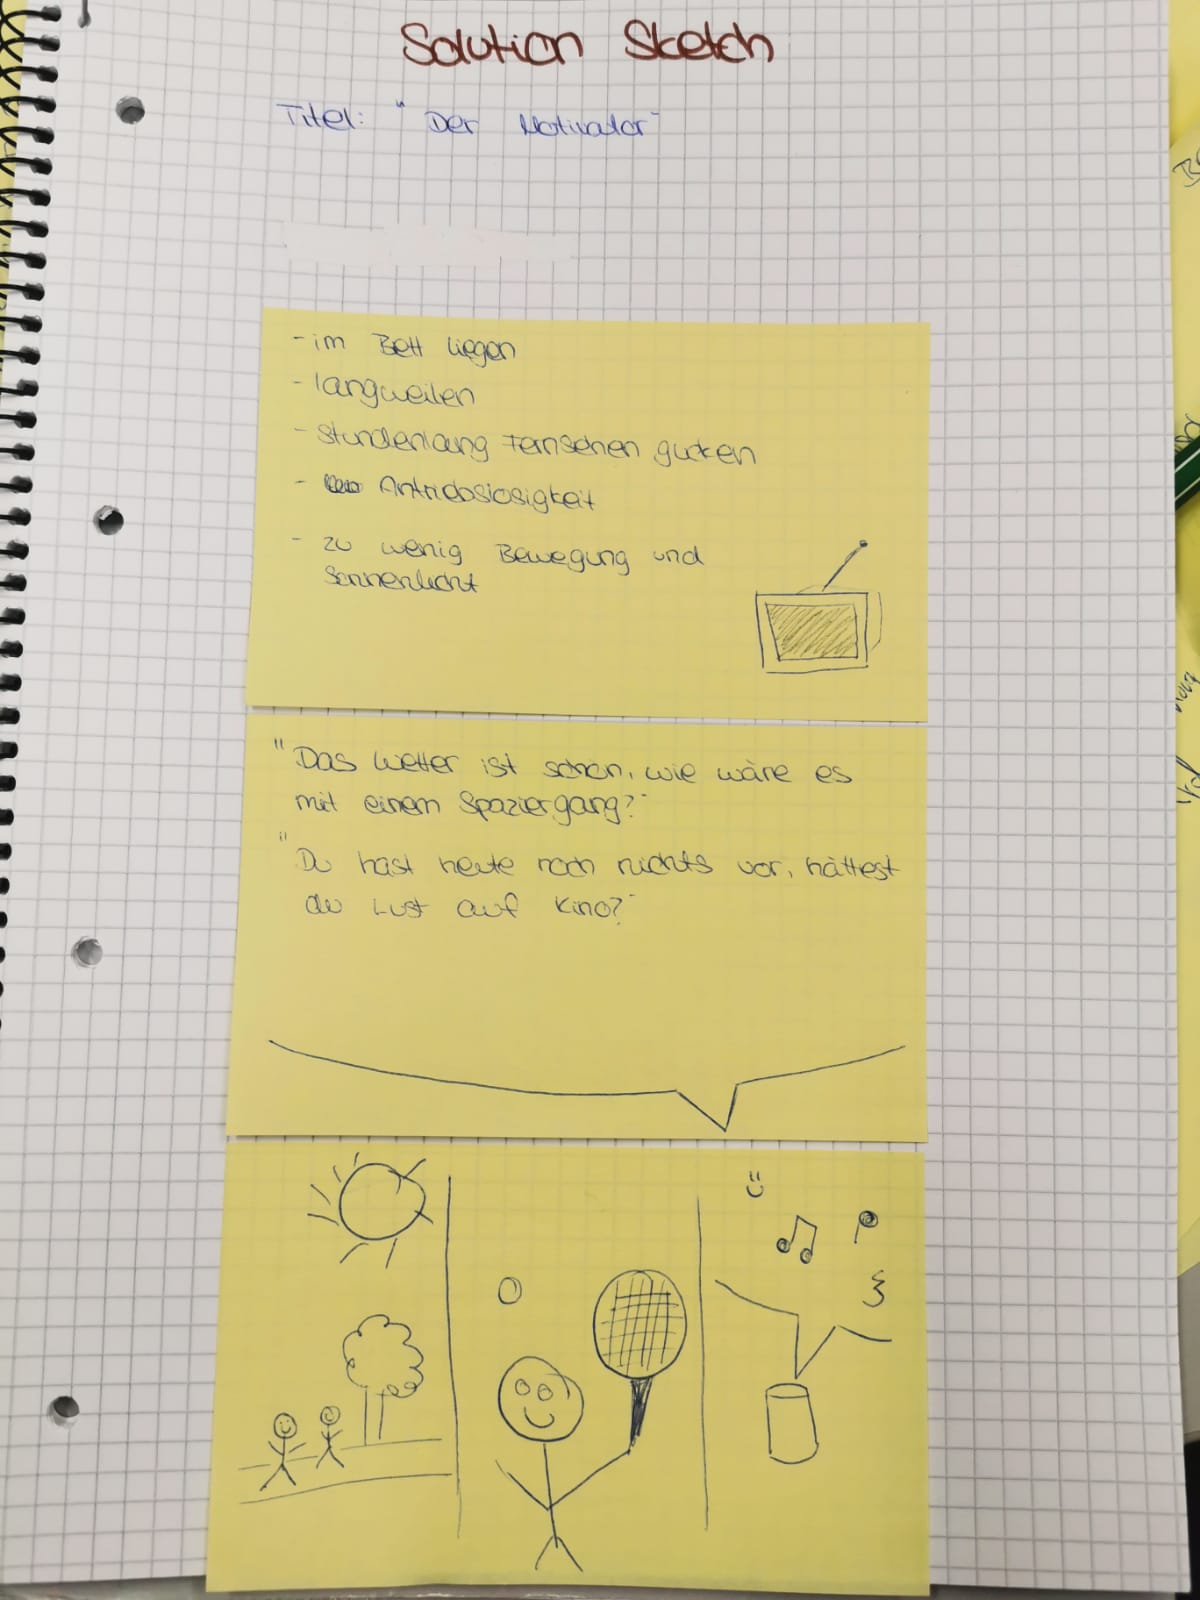 Solution Sketch
Titel: "Der Motivator"
- im Bett liegen
- langweilen
- stundenlang Fernsehen gucken
- Antriebslosigkeit
- zu wenig Bewegung und
Sonnenlicht
"Das Wetter ist schön, wie wäre es
mit einem Spaziergang?"
"Du hast heute noch nichts vor, hättest
du Lust auf Kino?"